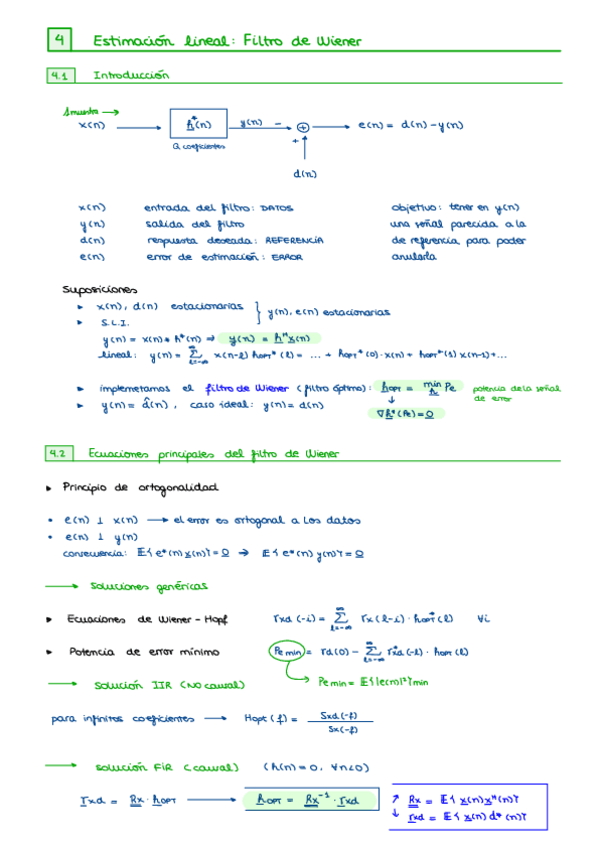 4 Estimación lineal: Filtro de Wiener
4.1 Introducción
1 muestra →
x(n) → h*(n) y(n) − + → e(n) = d(n) - y(n)
Q coeficientes
+
d(n)
x(n) entrada del filtro: DATOS
y(n) salida del filtro
d(n) respuesta deseada: REFERENCIA
e(n) error de estimación: ERROR
objetivo: tener en y(n)
una señal parecida a la
de referencia para poder
anularla
Suposiciones
► x(n), d(n) estacionarias } y(n), e(n) estacionarias
► S.L.I.
y(n) = x(n) * h*(n) ⇒ y(n) = h^H x(n)
lineal: y(n) = Σ_{l=-∞}^{∞} x(n-l) h_OPT*(l) = ... + h_OPT*(0)·x(n) + h_OPT*(1) x(n-1) + ...
► implemetamos el filtro de Wiener (filtro óptimo): h_OPT = min_h Pe potencia de la señal de error
↓
► y(n) = d̂(n), caso ideal: y(n) = d(n) ∇h*(Pe) = 0
4.2 Ecuaciones principales del filtro de Wiener
► Principio de ortogonalidad
• e(n) ⊥ x(n) → el error es ortogonal a los datos
• e(n) ⊥ y(n)
consecuencia: E{e*(n) x(n)} = 0 → E{e*(n) y(n)} = 0
→ soluciones genéricas
► Ecuaciones de Wiener-Hopf rxd(-i) = Σ_{l=-∞}^{∞} rx(l-i)·h_OPT*(l) ∀i
► Potencia de error mínimo Pe min = rd(0) - Σ_{l=-∞}^{∞} rxd*(-l)·h_OPT(l)
→ solución IIR (No causal) Pe min = E{|e(n)|²}min
para infinitos coeficientes → Hopt(f) = Sxd(-f) / Sx(-f)
→ solución FIR (causal) (h(n) = 0, ∀n<0)
rxd = Rx · h_OPT → h_OPT = Rx⁻¹ · rxd
↗ Rx = E{x(n) x^H(n)}
↓ rxd = E{x(n) d*(n)}